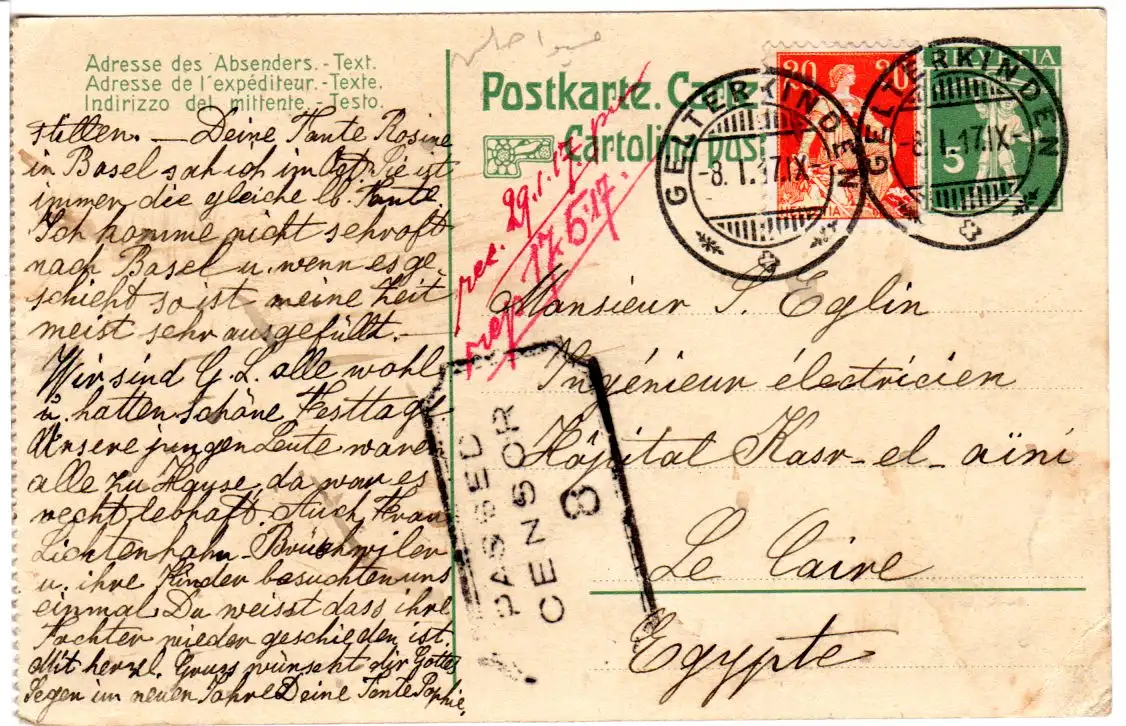 Adresse des Absenders. - Text.
Adresse de l'expéditeur. - Texte.
Indirizzo del mittente. - Testo.
Postkarte. Carte
Cartolina post
20 20
5
HELVETIA
GELTERKINDEN
-8. I. 17. IX-
GELTERKINDEN
-8. I. 17. IX-
rec. 29.1.17.
rep 17.5.17.
füllen. — Deine Tante Rosine
in Basel sah ich im Okt. Sie ist
immer die gleiche lb. Tante.
Ich komme nicht sehr oft
nach Basel u. wenn es ge-
schieht so ist meine Zeit
meist sehr ausgefüllt. —
Wir sind G. L. alle wohl
u. hatten schöne Festtage.
Unsere jungen Leute waren
alle zu Hause, da war es
recht lebhaft. Auch Frau
Lichtenhahn-Brüchwiler
u. ihre Kinder besuchten uns
einmal. Du weisst dass ihre
Tochter wieder geschieden ist.
Mit herzl. Gruss wünscht dir Gottes
Segen im neuen Jahre Deine Tante Sophie.
Monsieur S. Eglin
Ingénieur électricien
Hôpital Kasr-el-aïni
Le Caire
Egypte
PASSED
CENSOR
8